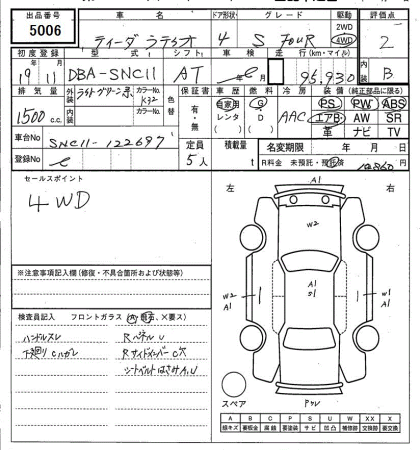 出品番号 車名 ドア形状 グレード 駆動 評価点
5006 ティーダラティオ 4 S FOUR 2WD 4WD 2
初度登録 型式 シフト 車検 走行(km・マイル) 内装
19 年 11 月 DBA-SNC11 AT 95,930 B
排気量 外装 内装 カラーNo. 色替 保証書 車歴 燃料 冷房 装備 (純正部品に限る)
1500 c.c. K32 有・無 自家用 レンタ G D AAC PS PW ABS
エアB AW SR
革 ナビ TV
車台No SNC11-122697 定員 5人 積載量 t 名変期限 年 月 日
登録No R料金 未預託・預託済
セールスポイント
4WD
左 右
A1
W2
A1
S1
W2
A1
W1
A1
※注意事項記入欄(修復・不具合箇所および状態等)
検査員記入 フロントガラス (A、飛石、×要ス)
ハンドルスレ Rパネル U
下廻り Cハガレ Rサイドメンバー C穴
シートベルトはさみ A,U
スペア
A B C P S U W XX X
線キズ 板金 腐蝕 要塗装 サビ 凹凸 補修跡 交換 要交換